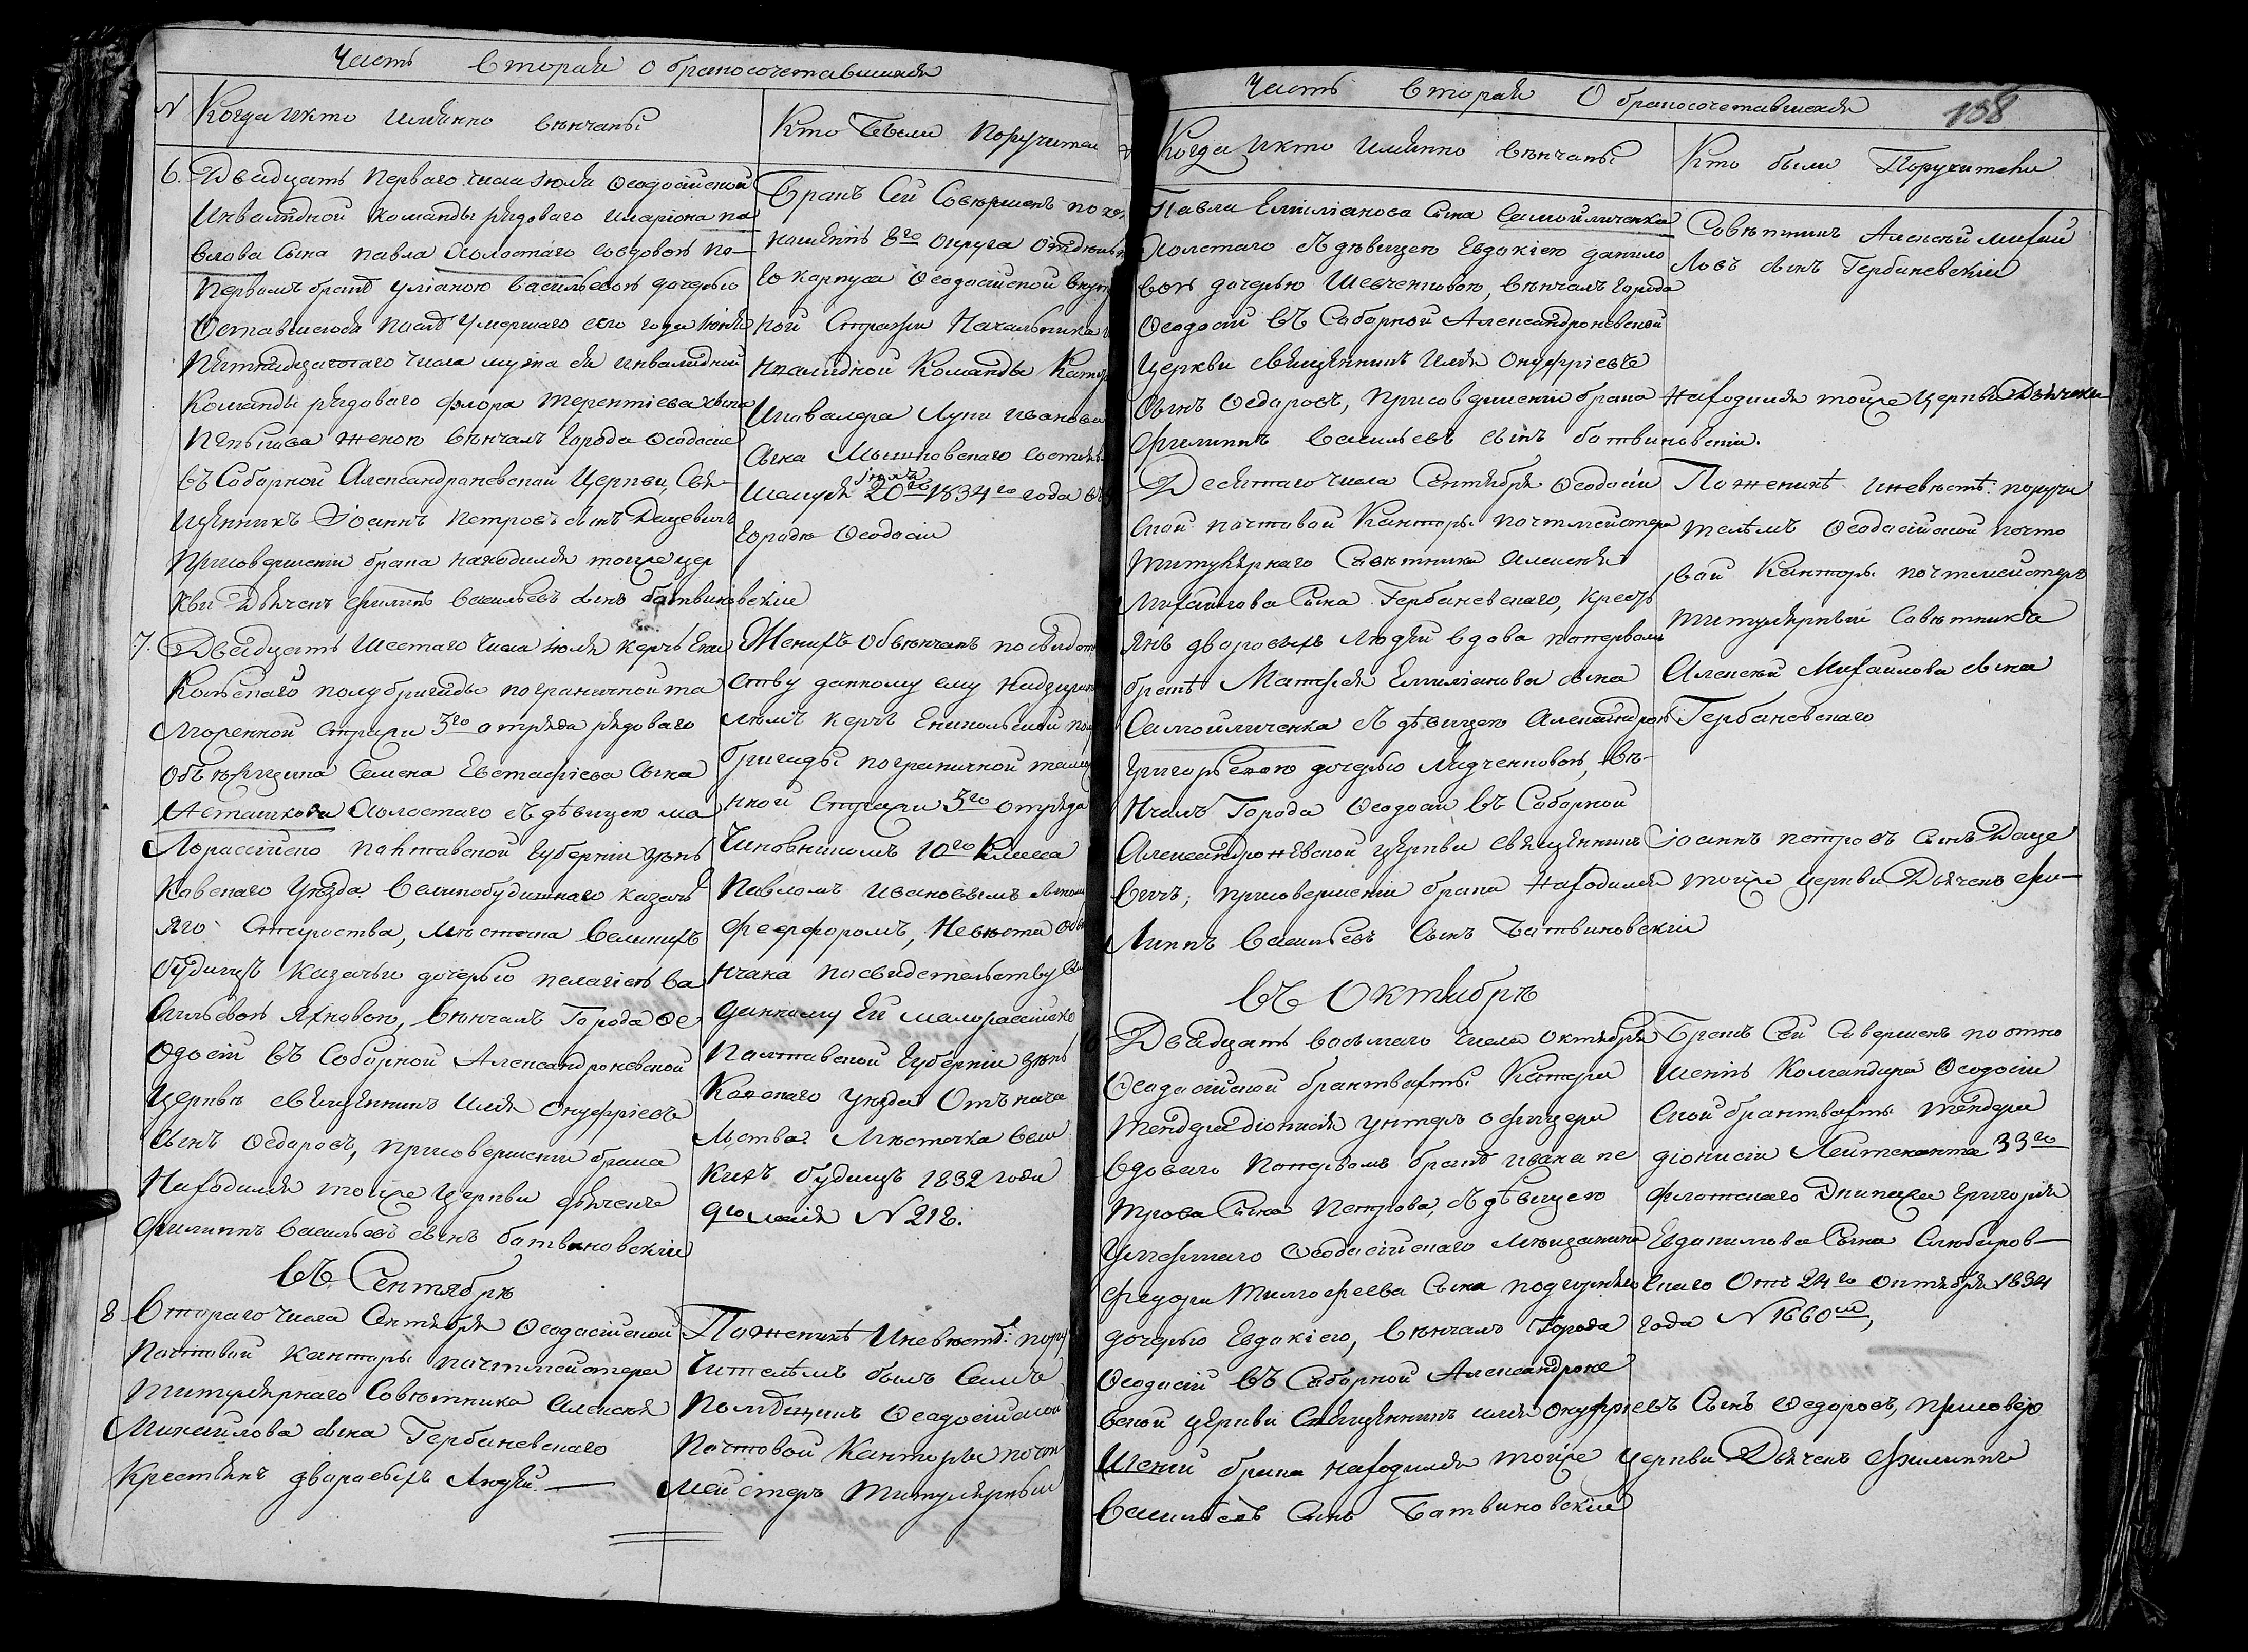 Часть вторая о бракосочетавшихся
N Когда и кто имянно венчаны
Кто были поручители
6. Двадцать перваго числа Июля Ѳеодосийской
Инвалидной команды рядоваго Илариона Па
влова сына Павла холостаго со вдовою по
первомъ бракѣ Улianою Васильевою дочерью
оставшеюся послѣ умершаго сего года Июня
пятнадцатаго числа мужа ея инвалидной
команды рядоваго Флора Терентiева сына
женою венчалъ города Ѳеодосiи
въ Соборной Александроневской Церкви, Свя-
щенникъ Iоаннъ Петровъ сынъ Дацевичъ
при совершенiи брака находился тойже цер
кви Дьячекъ Филиппъ Васильевъ сынъ Батвиновскiй
Бракъ сей совершенъ по
5го округа отдельн
го корпуса Ѳеодосiйской внутр
ней Стражи Начальника
нвалидной Команды
и кавалера Луки Иванова
сына
Июля
20го 1834го года въ
городѣ Ѳеодосiи
7. Двадцать шестаго числа Июля Керчь Ени
кольскаго полубригады пограничной та
моженной стражи 3го отряда рядоваго
объѣздчика Семена Евстафiева сына
холостаго съ дѣвицею ма
лороссiйско Полтавской губернiи Зѣнь
ковскаго уѣзда Великобудищнаго казачь
яго староства, мѣстечка Великихъ
Будищъ казачьи дочерью Пелагiею Ва
сильевою Яхновою, венчалъ города Ѳе
одосiи въ Соборной Александроневской
Церквѣ священникъ Илiя Онуфрiевъ
сынъ Ѳедоровъ, при совершенiи брака
находился тойже церкви дьячекъ
Филиппъ Васильевъ сынъ Батвиновскiй
Женихъ обвенчанъ по свидет
ству данному ему надзират
лемъ Керчь Еникольской полу
бригады пограничной тамож
нной стражи 3го отряда
чиновникомъ 10го класса
Павломъ Ивановымъ сыномъ
Фефоромъ, невеста обве
нчана по свидетельству
данному ей малороссiйско
Полтавской губернiи Зѣнь
ковскаго уѣзда отъ нача
льства мѣстечка Вели
кихъ Будищъ 1832 года
9го мая N 218.
въ Сентябрѣ
8 Втораго числа Сентября Ѳеодосiйской
почтовой конторы почтмейстера
титулярнаго совѣтника Алексѣя
Михайлова сына Гербаневскаго
крестьянъ дворовыхъ людей —
По женихѣ и невестѣ: пору
чителемъ былъ самъ
помѣщикъ Ѳеодосiйской
почтовой конторы почт
мейстеръ титулярный
Часть вторая о бракосочетавшихся 108
Когда и кто имянно венчаны
Кто были поручители
Павла Емилiанова сына Самойличенка
холостаго съ дѣвицею Евдокiею Данило
вою дочерью Шевченковою, венчалъ города
Ѳеодосiи въ Соборной Александроневской
церкви священникъ Илiя Онуфрiевъ
сынъ Ѳедоровъ, при совершенiи брака находился тойже церкви Дьячекъ
Филиппъ Васильевъ сынъ Батвиновскiй.
Совѣтникъ Алексѣй Михай
ловъ сынъ Гербаневскiй
Десятаго числа Сентября Ѳеодосiй
ской почтовой конторы почтмейстера
титулярнаго совѣтника Алексѣя
Михайлова сына Гербаневскаго, кресть
янъ дворовыхъ людей вдова по первомъ
бракѣ Матфея Емилiанова сына
Самойличенка съ дѣвицею Александрою
Григорьевою дочерью вѣ-
нчалъ города Ѳеодосiи въ Соборной
Александроневской церкви священникъ Iоаннъ Петровъ сынъ Даце
вичъ, при совершенiи брака находился тойже церкви Дьячекъ Фи-
липпъ Васильевъ сынъ Батвиновскiй
По женихѣ и невестѣ: поручи
телемъ Ѳеодосiйской почто
вой конторы почтмейстеръ
титулярный совѣтникъ
Алексѣй Михайлова сына
Гербаневскаго
въ Октябрѣ
Двадцать восьмаго числа Октября
Ѳеодосiйской брантвахты
тендера Дiонисiя унтеръ офицера
вдоваго по первомъ бракѣ Ивана Пе
трова сына Петрова, съ дѣвицею
умершаго Ѳеодосiйскаго мѣщанина
Федора Тимофеева сына
дочерью Евдокiею, венчалъ города
Ѳеодосiи въ Соборной Александроне
вской церкви Священникъ Илiя Онуфрiевъ сынъ Ѳедоровъ, при совер
шенiи брака находился тойже церкви Дьячекъ Филиппъ
Васильевъ сынъ Батвиновскiй
Бракъ сей совершенъ по отно
шенiю Командира Ѳеодосiй
ской брантвахты тендера
Дiонисiя Лейтенанта 33го
флотскаго Экипажа Григорiя
Евдокимова сына
скаго отъ 24го Октября 1834
года N 1660м,